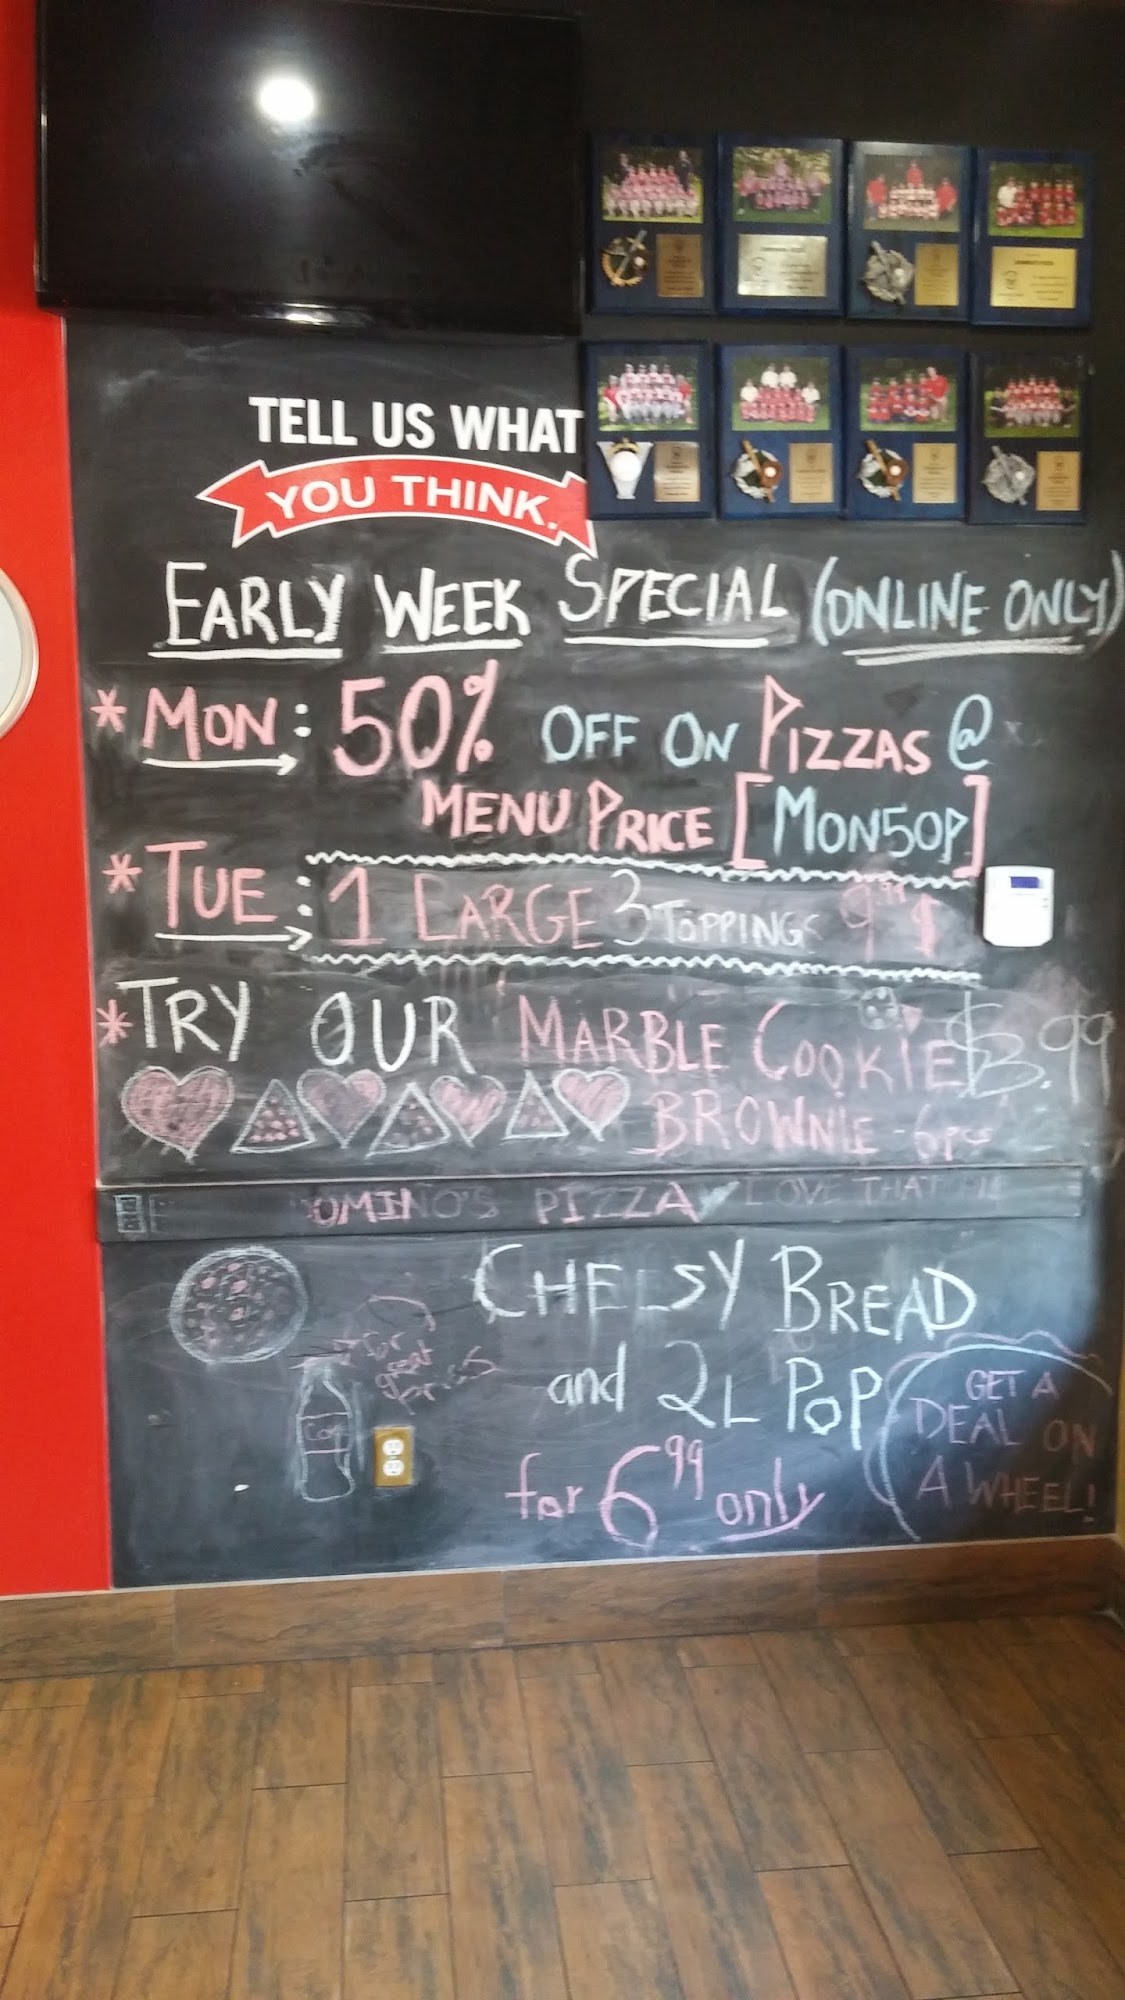 TELL US WHAT
YOU THINK.
EARLY WEEK SPECIAL (ONLINE ONLY)
* MON: 50% OFF ON PIZZAS @
MENU PRICE [MON50P]
* TUE: 1 LARGE 3 TOPPINGS 9.99 $
* TRY OUR MARBLE COOKIE $3.99
BROWNIE - 6pcs
OMINO'S PIZZA LOVE THAT
CHEESY BREAD
for great prices
and 2L POP
for 6.99 only
GET A
DEAL ON
A WHEEL!